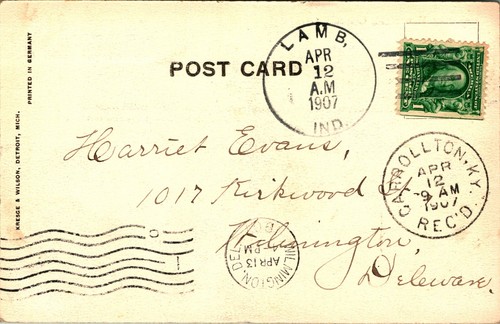 LAMB,
APR
12
A.M
1907
IND.
POST CARD
1 1
CARROLLTON, KY.
APR
12
9 AM
1907
REC'D.
Harriet Evans,
1017 Kirkwood St.
Wilmington,
Delaware.
WILMINGTON, DEL
APR 13
PM
KRESGE & WILSON, DETROIT, MICH.
PRINTED IN GERMANY